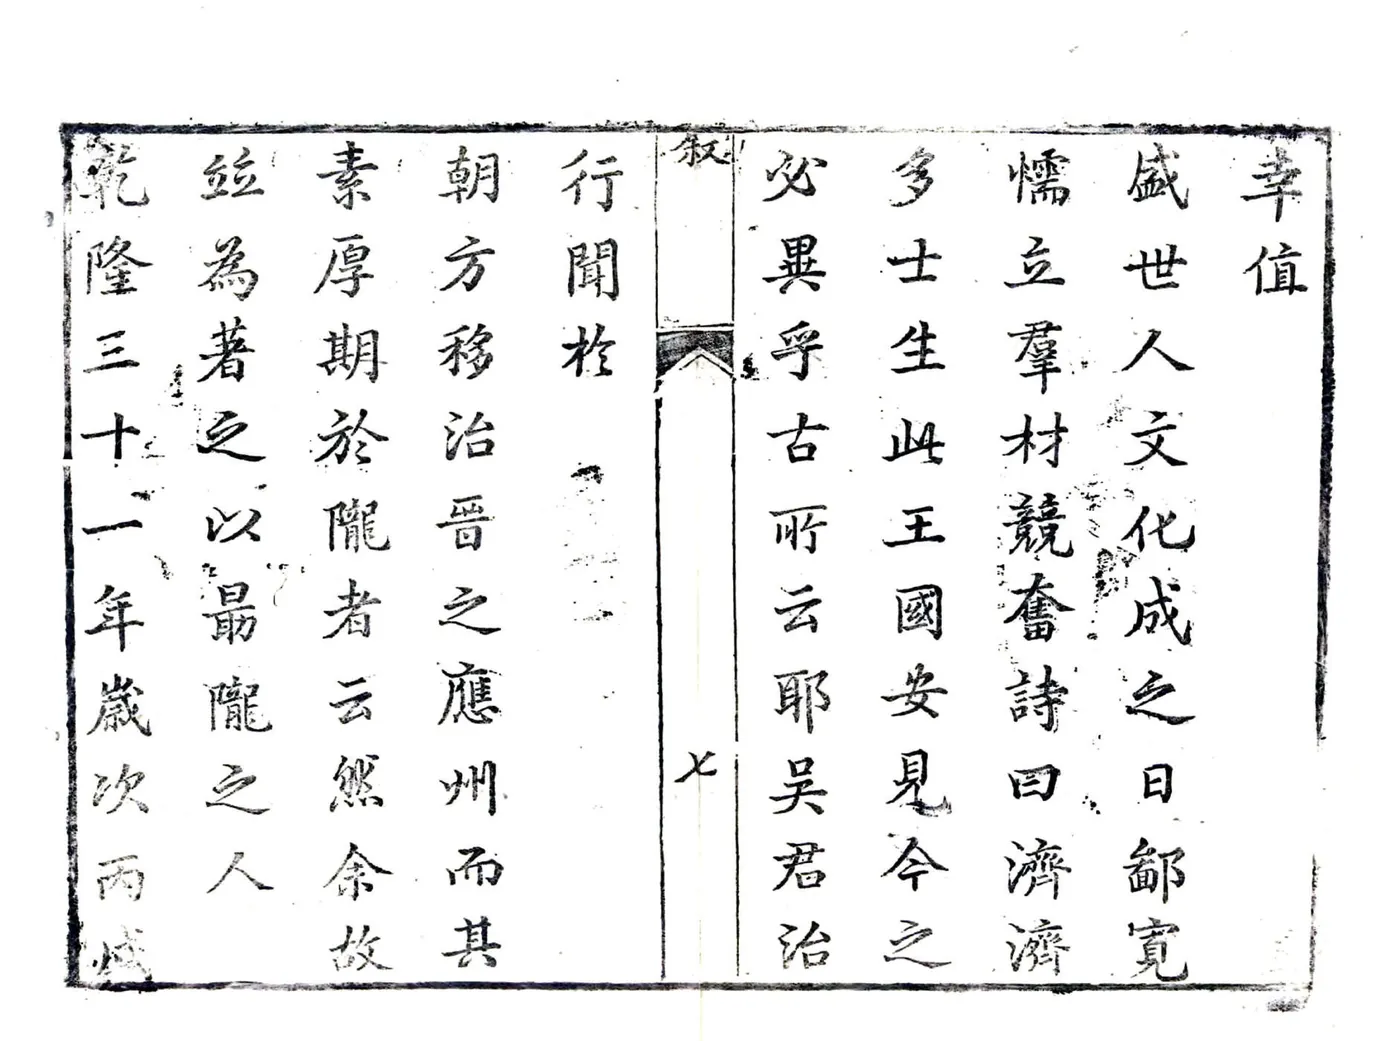 幸值
盛世人文化成之日鄙寬
懦立羣材競奮詩曰濟濟
多士生此王國安見今之
必異乎古所云耶吴君治
叙
七
行聞於
朝方移治晉之應州而其
素厚期於隴者云然余故
並為著之以最隴之人
乾隆三十一年歲次丙戌